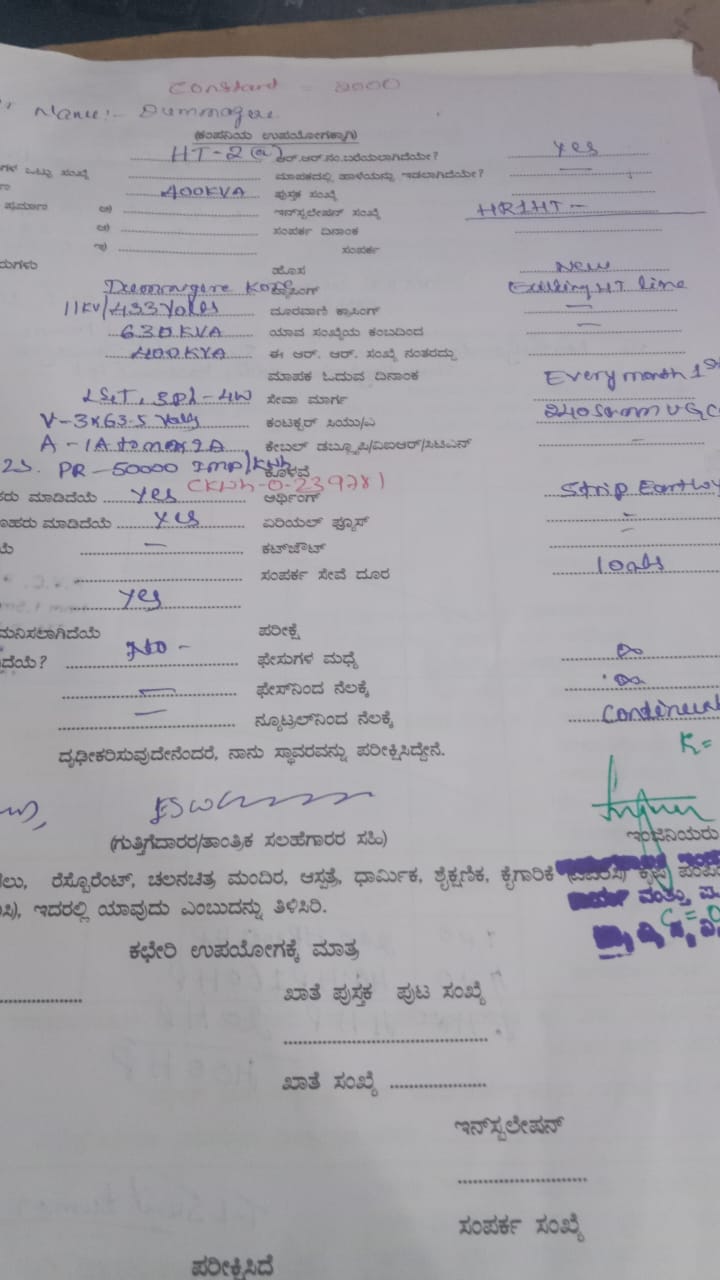 Constard = 2000
Name:- Dummagere
(ಕಂಪನಿಯ ಉಪಯೋಗಕ್ಕಾಗಿ)
HT-2(a) ಆರ್.ಆರ್.ನಂ.ಬರೆಯಲಾಗಿದೆಯೇ? Yes
ಗಳ ಒಟ್ಟು ಸಂಖ್ಯೆ ಮಾಪಕದಲ್ಲಿ ಹಾಳೆಯನ್ನು ಇಡಲಾಗಿದೆಯೇ? —
400KVA ಪುಸ್ತಕ ಸಂಖ್ಯೆ
ಪ್ರಮಾಣ ಅ) ಇನ್‌ಸ್ಟಲೇಷನ್ ಸಂಖ್ಯೆ HR1HT-
ಆ) ಸಂಪರ್ಕ ದಿನಾಂಕ
ಇ) ಸಂಪರ್ಕ
ರುಗಳು ಹೊಸ New
Dummagere ಕ್ರಾಸಿಂಗ್ Existing HT line
11KV/433 Volts ದೂರವಾಣಿ ಕ್ರಾಸಿಂಗ್ —
630KVA ಯಾವ ಸಂಖ್ಯೆಯ ಕಂಬದಿಂದ —
400KVA ಈ ಆರ್. ಆರ್. ಸಂಖ್ಯೆ ನಂತರದ್ದು
ಮಾಪಕ ಓದುವ ದಿನಾಂಕ Every month 1st
L&T, 3ph-4W ಸೇವಾ ಮಾರ್ಗ
V-3x63.5 Volts ಕಂಟಕ್ಟರ್ ಸಿಯು/ಎ 240 Sqmm UGC
A-1A to max 2A ಕೇಬಲ್ ಡಬ್ಲ್ಯೂಪಿ/ಐಐಆರ್/ಸಿಟಿಎನ್ —
PR-50000 Imp/kwh ಕೊಳವೆ
ಹರು ಮಾಡಿದೆಯೆ Yes CKWh-0.239781 ಅರ್ಥಿಂಗ್ Strip Earthing
ಮೊಹರು ಮಾಡಿದೆಯೆ Yes ಏರಿಯಲ್ ಫ್ಯೂಸ್ —
ಯೆ — ಕಟ್‌ಔಟ್ —
ಸಂಪರ್ಕ ಸೇವೆ ದೂರ
Yes
ಮನಿಸಲಾಗಿದೆಯೆ ಪರೀಕ್ಷೆ
ದೆಯೆ? No - ಫೇಸುಗಳ ಮಧ್ಯೆ ∞
— ಫೇಸ್‌ನಿಂದ ನೆಲಕ್ಕೆ ∞
— ನ್ಯೂಟ್ರಲ್‌ನಿಂದ ನೆಲಕ್ಕೆ
K=
ದೃಢೀಕರಿಸುವುದೇನೆಂದರೆ, ನಾನು ಸ್ಥಾವರವನ್ನು ಪರೀಕ್ಷಿಸಿದ್ದೇನೆ.
(ಗುತ್ತಿಗೆದಾರರ/ತಾಂತ್ರಿಕ ಸಲಹೆಗಾರರ ಸಹಿ) ಇಂಜಿನಿಯರು
ಲು, ರೆಸ್ಟೊರೆಂಟ್, ಚಲನಚಿತ್ರ ಮಂದಿರ, ಆಸ್ಪತ್ರೆ, ಧಾರ್ಮಿಕ, ಶೈಕ್ಷಣಿಕ, ಕೈಗಾರಿಕೆ
ಸಿ), ಇದರಲ್ಲಿ ಯಾವುದು ಎಂಬುದನ್ನು ತಿಳಿಸಿರಿ.
ಕಛೇರಿ ಉಪಯೋಗಕ್ಕೆ ಮಾತ್ರ
ಖಾತೆ ಪುಸ್ತಕ ಪುಟ ಸಂಖ್ಯೆ
ಖಾತೆ ಸಂಖ್ಯೆ
ಇನ್‌ಸ್ಟಲೇಷನ್
ಸಂಪರ್ಕ ಸಂಖ್ಯೆ
ಪರೀಕ್ಷಿಸಿದೆ